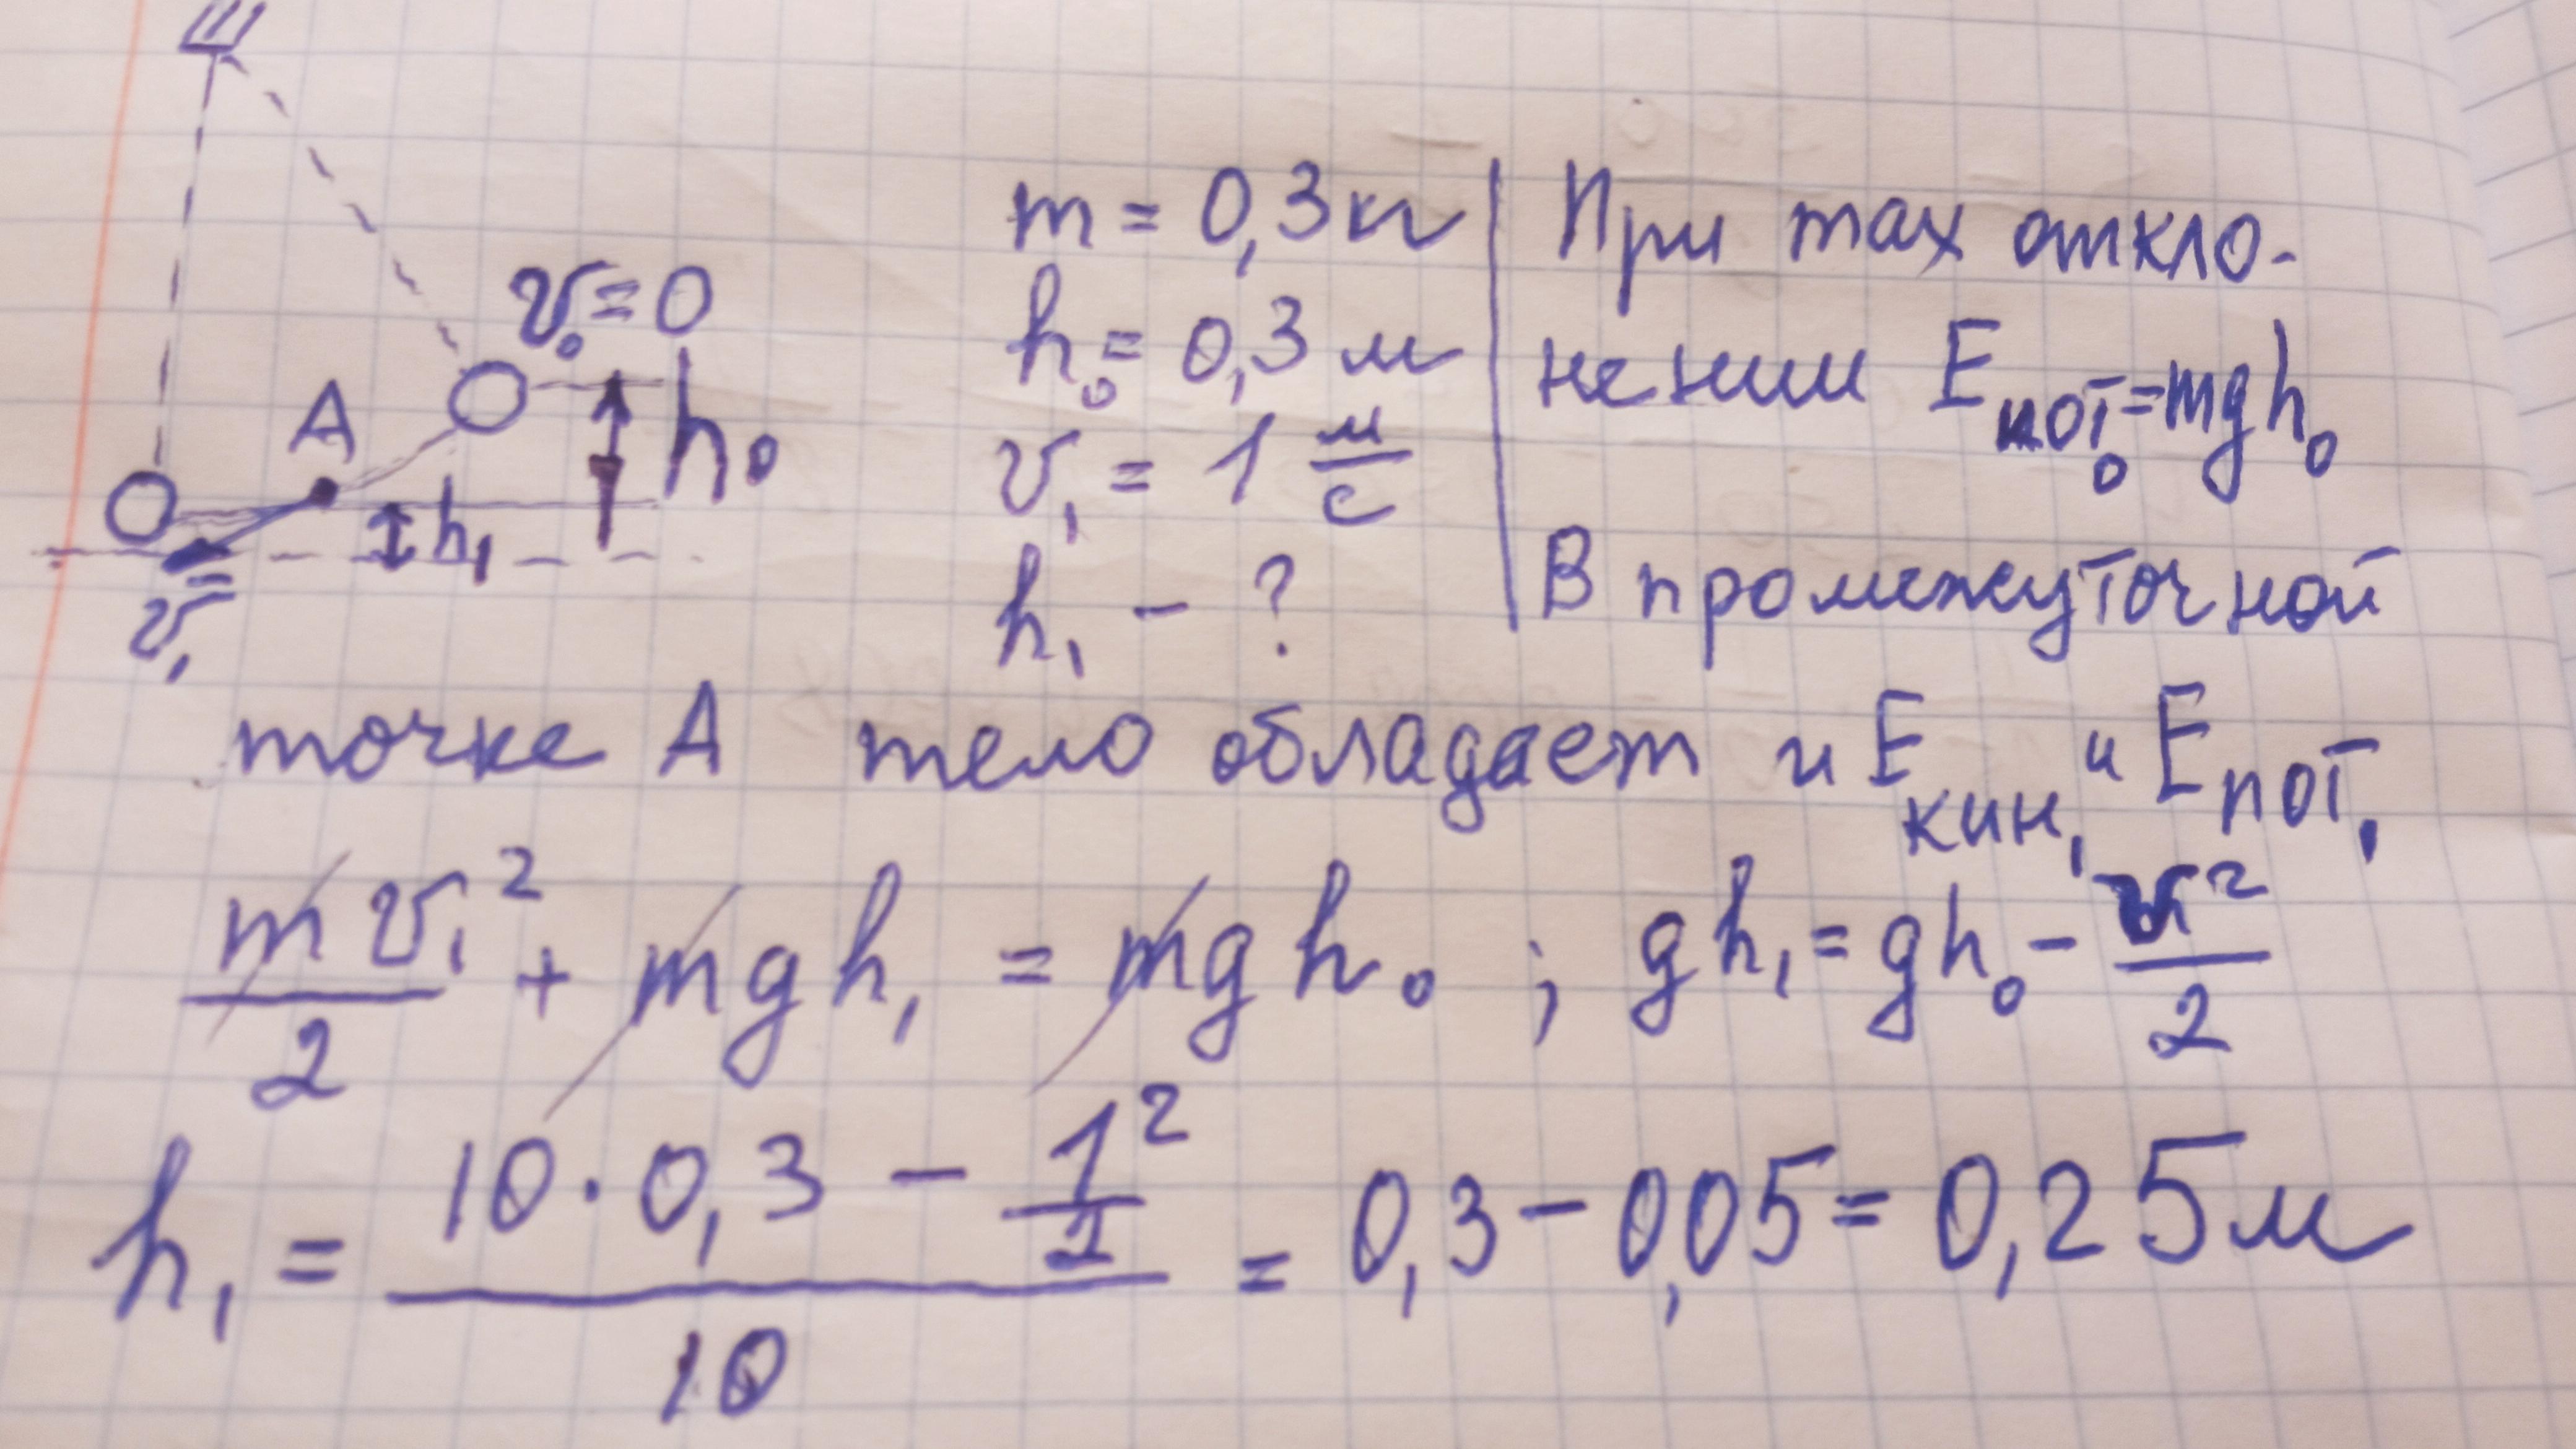 v₀ = 0
A
h₀
h₁
v₁
m = 0,3 кг
h₀ = 0,3 м
v₁ = 1 м/с
h₁ - ?
При max откло-
нении Eпот₀ = mgh₀
В промежуточной
точке А тело обладает и Eкин₁ и Eпот₁
mv₁²/2 + mgh₁ = mgh₀ ; gh₁ = gh₀ - v₁²/2
h₁ = (10·0,3 - 1²/2)/10 = 0,3 - 0,05 = 0,25 м